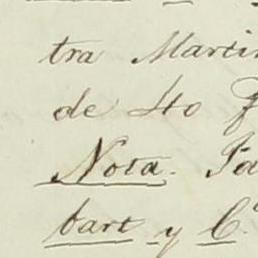 tra Martin
de 40
Nota. Ja
bart y C.ª